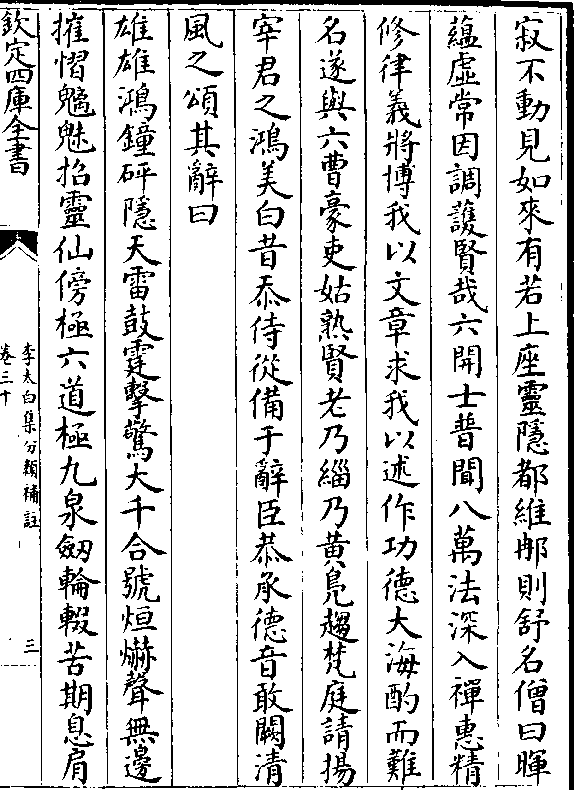 寂不動見如來有若上座靈隱都維那則舒名僧曰暉
蘊虛常因調護賢哉六開士普聞八萬法深入禪惠精
修律義將博我以文章求我以述作功德大海酌而難
名遂與六曹豪吏姑熟賢老乃緇乃黄鳧趨梵庭請揚
宰君之鴻美白昔忝侍從備于辭臣恭承德音敢闕清
風之頌其辭曰
雄雄鴻鐘砰隱天雷鼓霆擊驚大千合號烜爀聲無邊
摧慴魑魅招靈仙傍極六道極九泉劒輪輟苦期息肩
欽定四庫全書
李太白集分類補註
卷三十
三